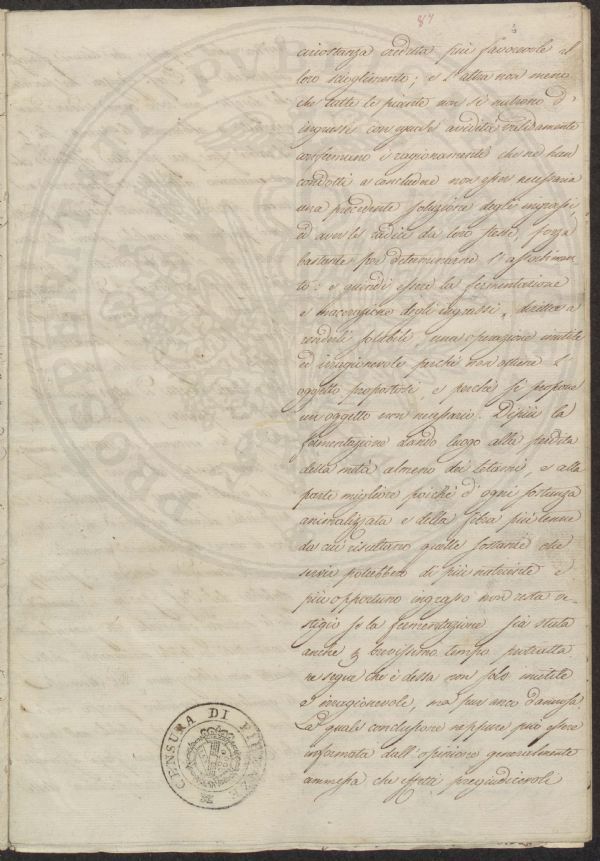 87
circostanza creduta più favorevole al
loro scioglimento; e l'altra non meno
che tutte le piante non si nutrono d'
ingrassi con eguale avidità validamente
confermino i ragionamenti che ne han
condotti a concludere non esser necessaria
una precedente soluzione degli ingrassi
ed aver le radici da loro stesse forza
bastante per determinarne l'assorbimen
to: e quindi essere la fermentazione
e macerazione degli ingrassi, diretta a
renderli solubili, una operazione inutile
ed irragionevole perché non ottiene l'
oggetto propostosi, e perché si propone
un oggetto non necessario. Dipiù la
fermentazione dando luogo alla perdita
della metà almeno dei letami, e alla
parte migliore poiché d'ogni sostanza
animalizzata e della fibra più tenue
da cui risultano quelle sostanze che
servir potrebbero di più nutriente e
più opportuno ingrasso non resta ve-
stigio se la fermentazione sia stata
anche p brevissimo tempo protratta
ne segue che è dessa non solo inutile
e irragionevole, ma pur anco dannosa.
La quale conclusione neppure può essere
infirmata dall'opinione generalmente
ammessa che effetti pregiudicevoli
CENSURA DI FIRENZE
PRO PATRI PVBL